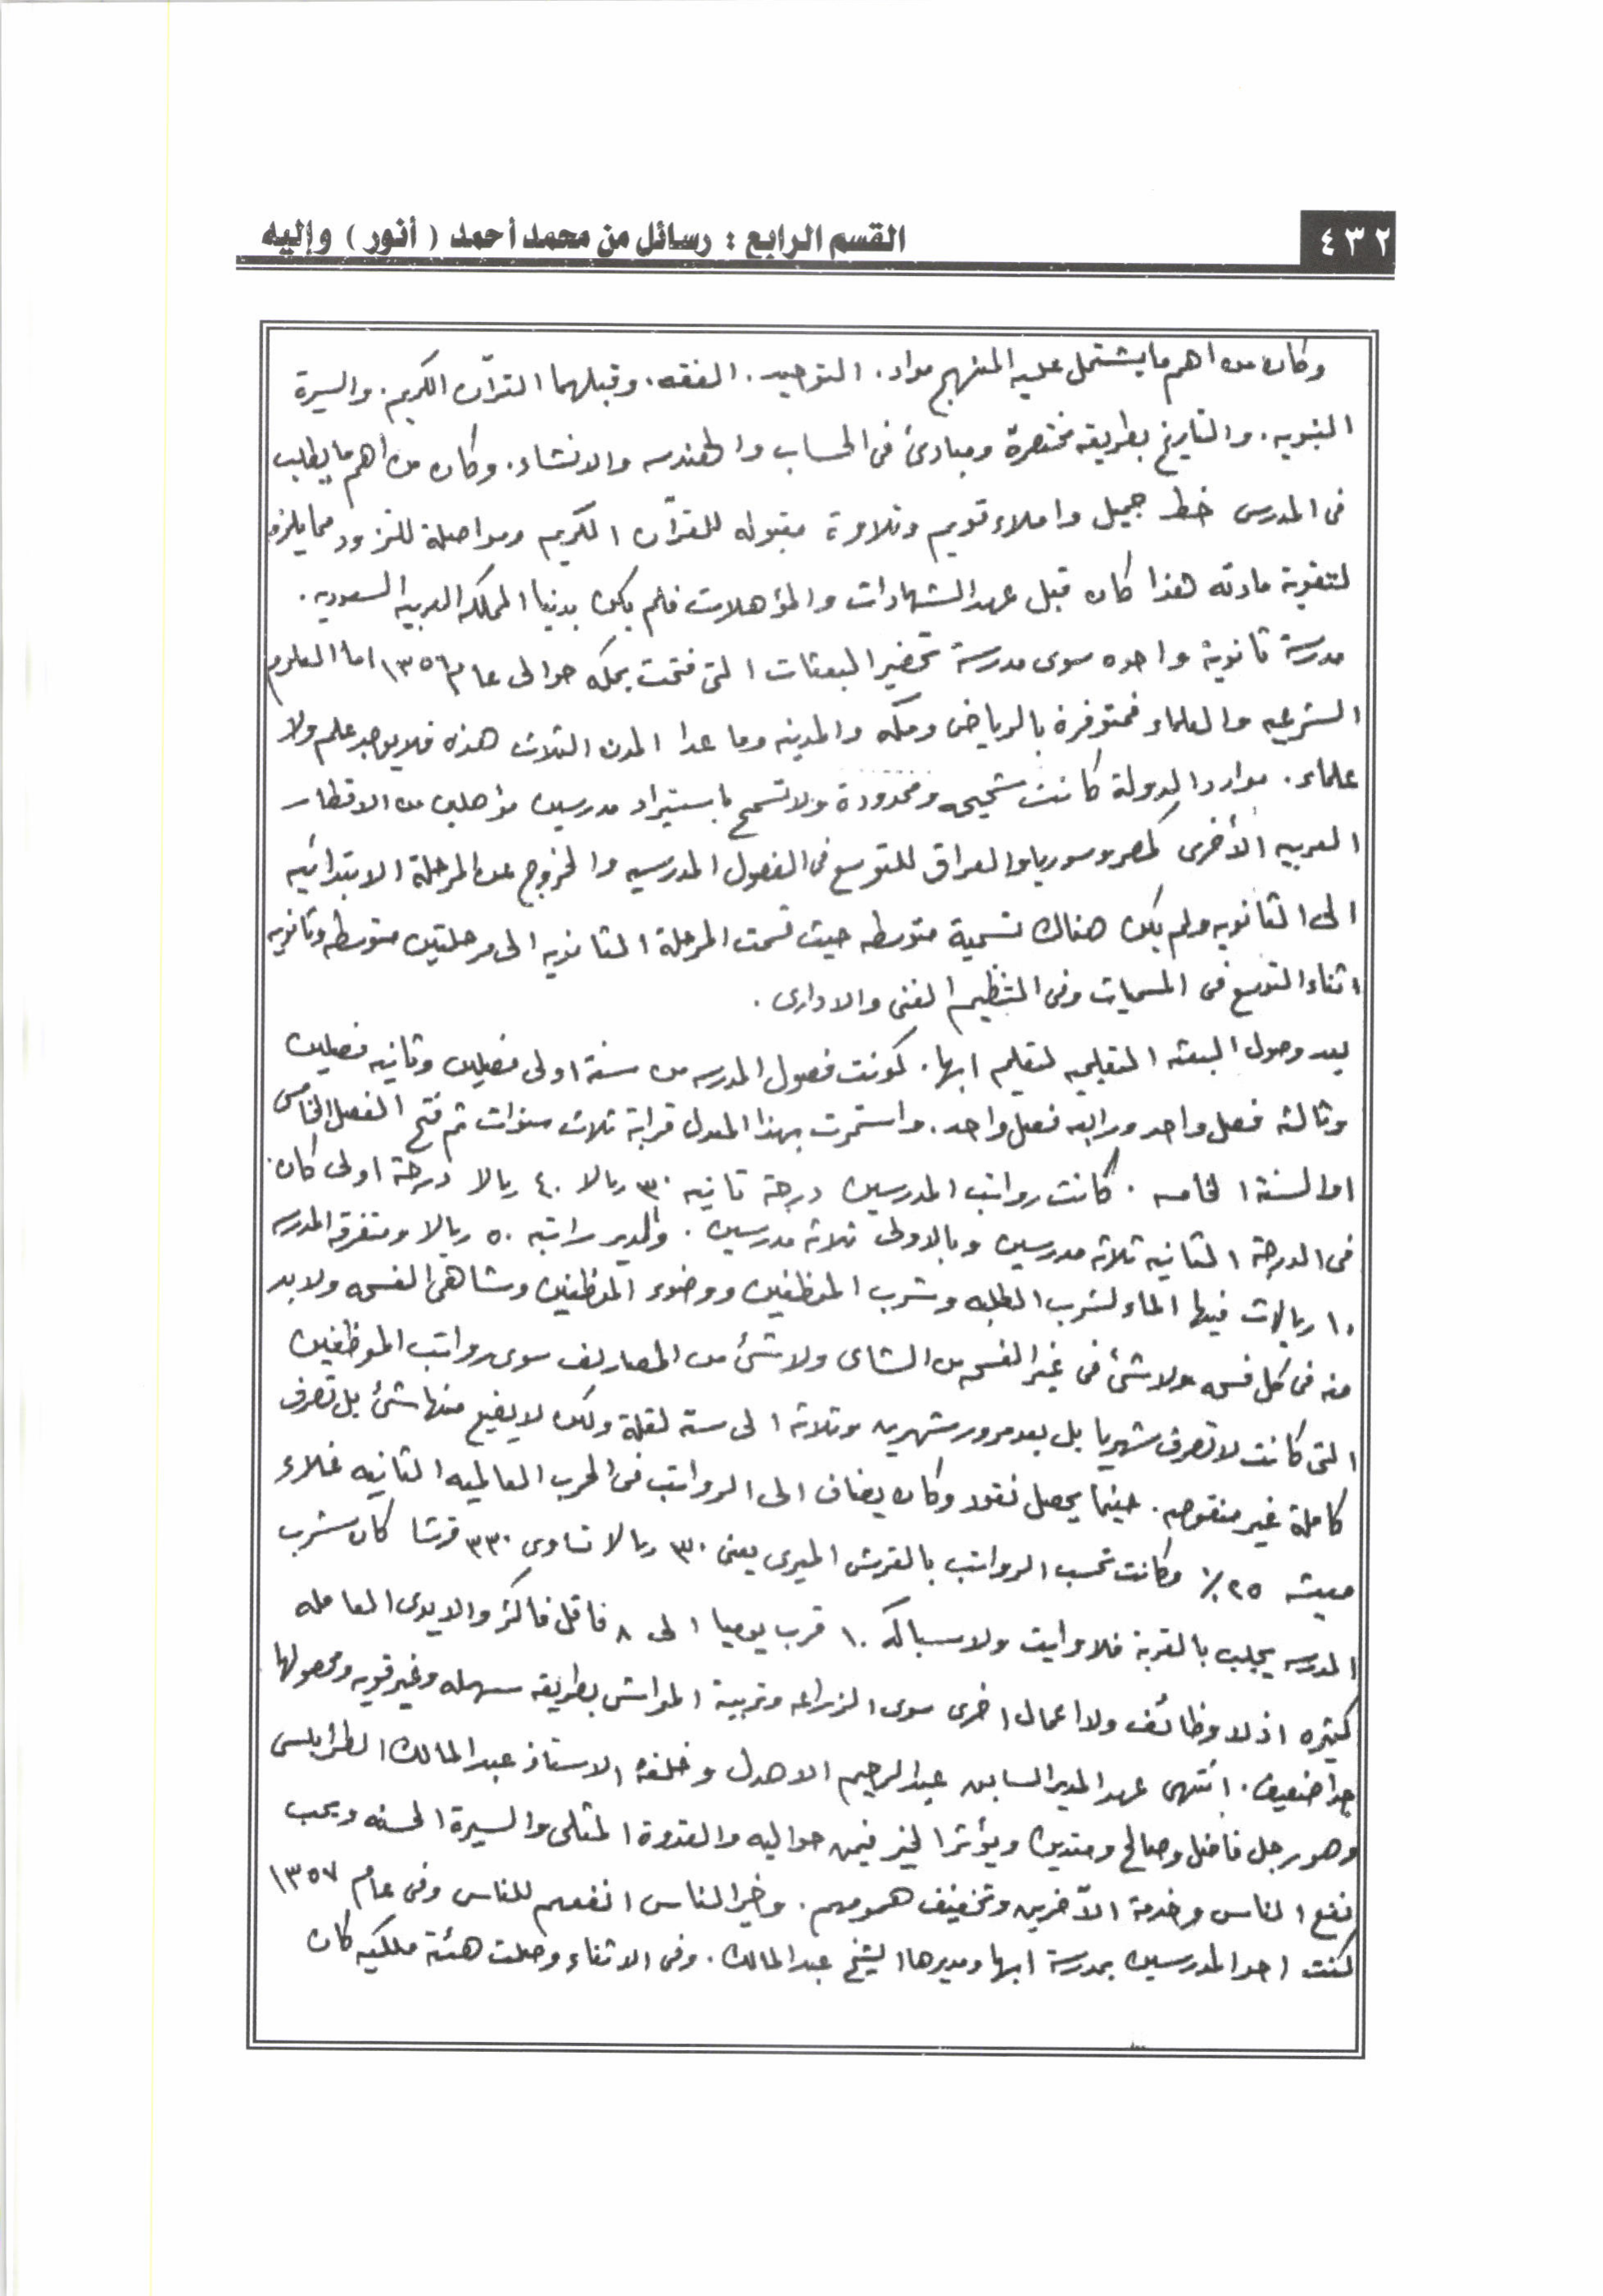 ٤٣٢
القسم الرابع : رسائل من محمد أحمد ( أنور ) وإليه
وكان من اهم ما يشتمل عليه المنهج مواد . التوحيد . الفقه . وقبلهما القرآن الكريم . والسيرة
النبويه . والتاريخ بطريقه مختصرة ومبادئ فى الحساب والهندسه والانشاء . وكان من اهم ما يطلب
فى المدرس خط جميل واملاء قويم وتلاوة مقبوله للقرآن الكريم ومواصلة للتزود مما يلزم
لتقوية مادته هذا كان قبل عهد الشهادات والمؤهلات فلم يكن بدنيا المملكه العربيه السعوديه .
مدرسة ثانوية واحده سوى مدرسة تحضير البعثات التى فتحت بمكه حوالى عام ١٣٥٦ اما العلوم
الشرعيه والعلماء فمتوفرة بالرياض ومكه والمدينه وما عدا المدن الثلاث هذه فلا يوجد علم ولا
علماء . موارد الدولة كانت شحيحه ومحدودة ولا تسمح باستيراد مدرسين مؤهلين من الاقطار
العربيه الأخرى كمصر وسوريا والعراق للتوسع فى الفصول المدرسيه والخروج من المرحلة الابتدائيه
الى الثانويه ولم يكن هناك تسمية متوسطه حيث قسمت المرحلة الثانويه الى مرحلتين متوسطه وثانويه
اثناء التوسع فى المسميات وفى التنظيم الفنى والادارى .
بعد وصول البعثه التعليميه لتعليم ابها . كونت فصول المدرسه من سنة اولى فصلين وثانيه فصلين
وثالثه فصل واحد ورابعه فصل واحد . واستمرت بهذا المعدل قرابة ثلاث سنوات ثم فتح الفصل الخامس
اى السنة الخامسه . كانت رواتب المدرسين درجة ثانيه ٣٠ ريالا ٤٠ ريالا درجة اولى كان
فى الدرجة الثانيه ثلاثه مدرسين وبالاولى ثلاثه مدرسين . والمدير راتبه ٥٠ ريالا ومتفرقه المدرسه
١٠ ريالات فيها الماء لشرب الطلبه وشرب الموظفين ووضوء الموظفين وشاهى الفسحه ولابد
منه فى كل فسحه ولا شئ فى غير الفسحه من الشاى ولا شئ من المصاريف سوى رواتب الموظفين
التى كانت لا تصرف شهريا بل بعد مرور شهرين وثلاثة الى ستة لقلة ولكن لا يضيع منها شئ بل تصرف
كاملة غير منقوصه . حينما يحصل نقود وكان يضاف الى الرواتب فى الحرب العالميه الثانيه غلاء
معيشه ٢٥٪ وكانت تحسب الرواتب بالقرش الميرى يعنى ٣٠ ريالا تساوى ٣٣٠ قرشا كان شرب
المدرسه يجلب بالقربة فلا وايت ولا سباكه ١٠ قرب يوميا الى ٨ فاقل فاكثر والايدى العامله
كثيره اذ لا وظائف ولا اعمال اخرى سوى الزراعه وتربية المواشى بطريقه سهله وغير قويه ومحصولها
جدا ضعيف . انتهى عهد المدير السابق عبدالرحيم الاهدل وخلفه الاستاذ عبدالمالك الطرابلسى
وهو رجل فاضل وصالح ومتدين ويؤثر الخير فيمن حواليه والقدوة المثلى والسيرة الحسنه ويحب
نفع الناس وخدمة الآخرين وتخفيف همومهم . وخير الناس انفعهم للناس وفى عام ١٣٥٧
كنت احد المدرسين بمدرسة ابها ومديرها الشيخ عبدالمالك . وفى الاثناء وصلت هئة ملكيه كان